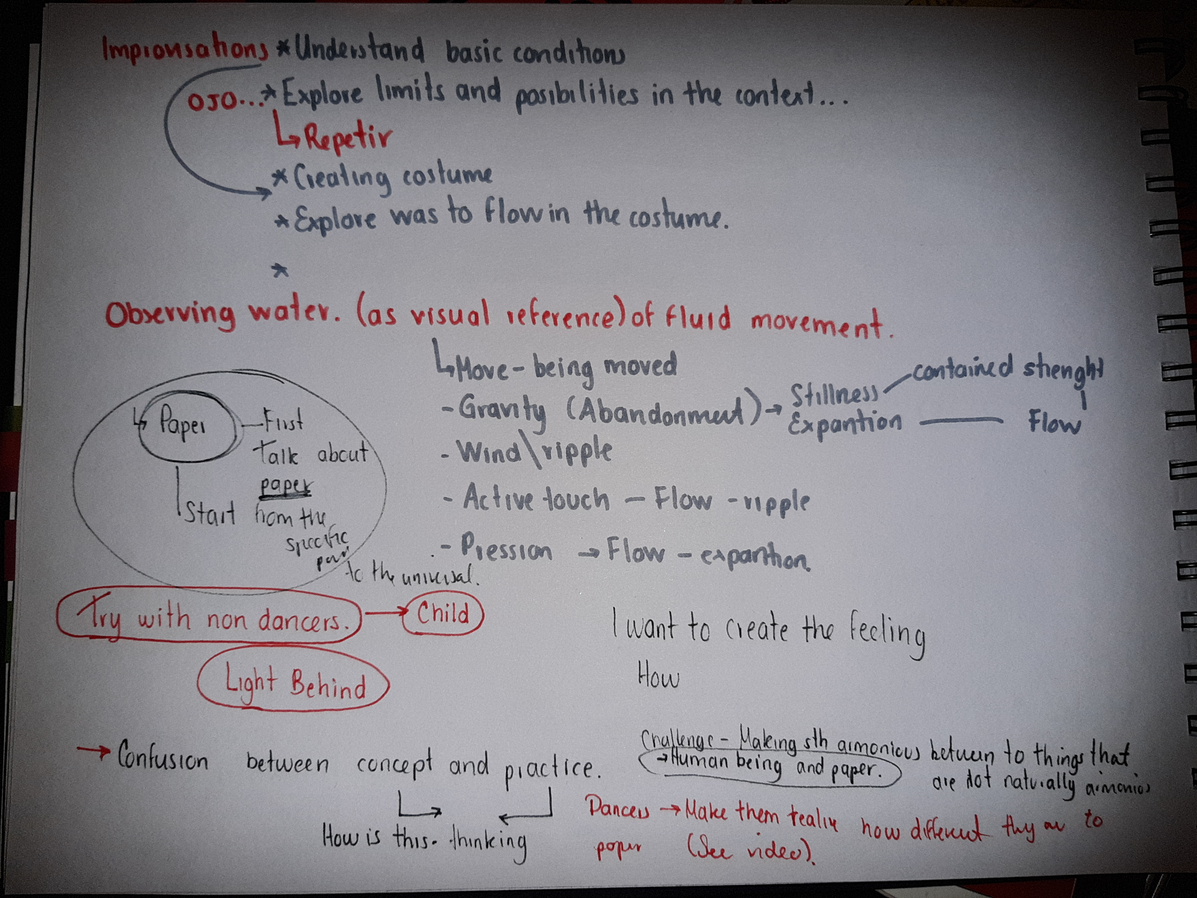 Improvisations * Understand basic conditions
OJO... * Explore limits and posibilities in the context...
↳ Repetir
* Creating costume
* Explore was to flow in the costume.
*
Observing water. (as visual reference) of fluid movement.
↳ Move - being moved
- Gravity (Abandonment) → Stillness — contained strenght
Expantion — Flow
- Wind \ ripple
- Active touch — Flow - ripple
- Pression → Flow - expantion.
↳ Paper — First
Talk about
paper
Start from the
specific
to the universal.
Try with non dancers. → Child
Light Behind
I want to create the feeling
How
→ Confusion between concept and practice.
How is this - thinking
Challenge - Making sth armonious between to things that
are not naturally armonios
→ Human being and paper.
Dancers → Make them realize how different they are to
paper (See video).